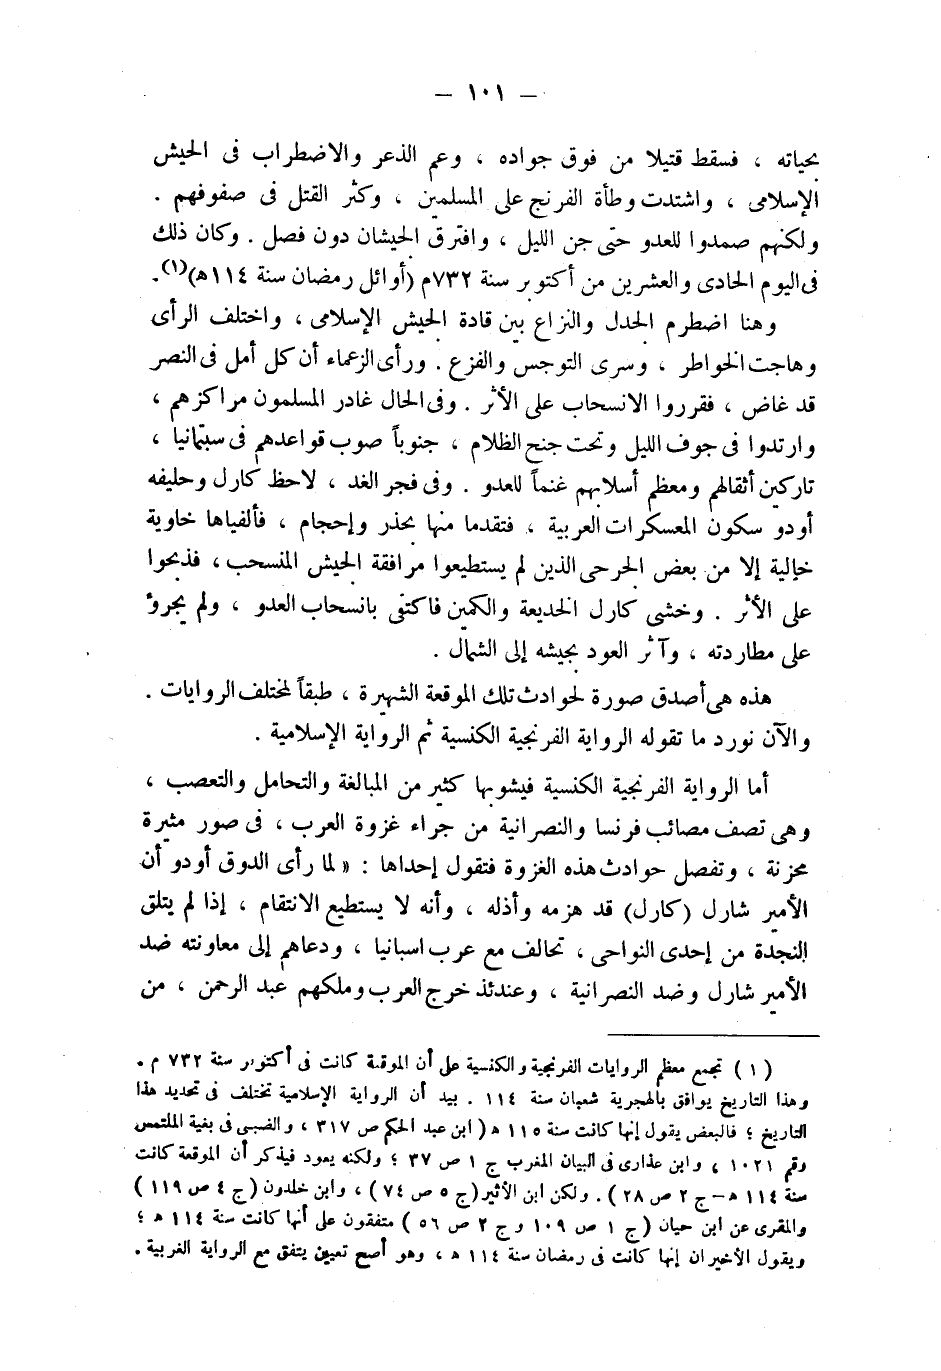 — ١٠١ —
بحياته ، فسقط قتيلا من فوق جواده ، وعم الذعر والاضطراب فى الجيش
الإسلامى ، واشتدت وطأة الفرنج على المسلمين ، وكثر القتل فى صفوفهم .
ولكنهم صمدوا للعدو حتى جن الليل ، وافترق الجيشان دون فصل . وكان ذلك
فى اليوم الحادى والعشرين من أكتوبر سنة ٧٣٢م (أوائل رمضان سنة ١١٤ه)(١).
وهنا اضطرم الجدل والنزاع بين قادة الجيش الإسلامى ، واختلف الرأى
وهاجت الخواطر ، وسرى التوجس والفزع . ورأى الزعماء أن كل أمل فى النصر
قد غاض ، فقرروا الانسحاب على الأثر . وفى الحال غادر المسلمون مراكزهم ،
وارتدوا فى جوف الليل وتحت جنح الظلام ، جنوباً صوب قواعدهم فى سبتمانيا ،
تاركين أثقالهم ومعظم أسلابهم غنماً للعدو . وفى فجر الغد ، لاحظ كارل وحليفه
أودو سكون المعسكرات العربية ، فتقدما منها بحذر وإحجام ، فألفياها خاوية
خالية إلا من بعض الجرحى الذين لم يستطيعوا مرافقة الجيش المنسحب ، فذبحوا
على الأثر . وخشى كارل الخديعة والكمين فاكتفى بانسحاب العدو ، ولم يجرؤ
على مطاردته ، وآثر العود بجيشه إلى الشمال .
هذه هى أصدق صورة لحوادث تلك الموقعة الشهيرة ، طبقاً لمختلف الروايات .
والآن نورد ما تقوله الرواية الفرنجية الكنسية ثم الرواية الإسلامية .
أما الرواية الفرنجية الكنسية فيشوبها كثير من المبالغة والتحامل والتعصب ،
وهى تصف مصائب فرنسا والنصرانية من جراء غزوة العرب ، فى صور مثيرة
محزنة ، وتفصل حوادث هذه الغزوة فتقول إحداها : « لما رأى الدوق أودو أن
الأمير شارل (كارل) قد هزمه وأذله ، وأنه لا يستطيع الانتقام ، إذا لم يتلق
النجدة من إحدى النواحى ، تحالف مع عرب اسبانيا ، ودعاهم إلى معاونته ضد
الأمير شارل وضد النصرانية ، وعندئذ خرج العرب وملكهم عبد الرحمن ، من
(١) تجمع معظم الروايات الفرنجية والكنسية على أن الموقعة كانت فى أكتوبر سنة ٧٣٢ م .
وهذا التاريخ يوافق بالهجرية شعبان سنة ١١٤ . بيد أن الرواية الإسلامية تختلف فى تحديد هذا
التاريخ ؛ فالبعض يقول إنها كانت سنة ١١٥ ه ( ابن عبد الحكم ص ٣١٧ ، والضبى فى بغية الملتمس
رقم ١٠٢١ ، وابن عذارى فى البيان المغرب ج ١ ص ٣٧ ؛ ولكنه يعود فيذكر أن الموقعة كانت
سنة ١١٤ ه – ج ٢ ص ٢٨ ) . ولكن ابن الأثير (ج ٥ ص ٧٤ ) ، وابن خلدون (ج ٤ ص ١١٩ )
والمقرى عن ابن حيان (ج ١ ص ١٠٩ و ج ٢ ص ٥٦ ) متفقون على أنها كانت سنة ١١٤ ه ؛
ويقول الأخيران إنها كانت فى رمضان سنة ١١٤ ه ، وهو أصح تعيين يتفق مع الرواية الغربية .